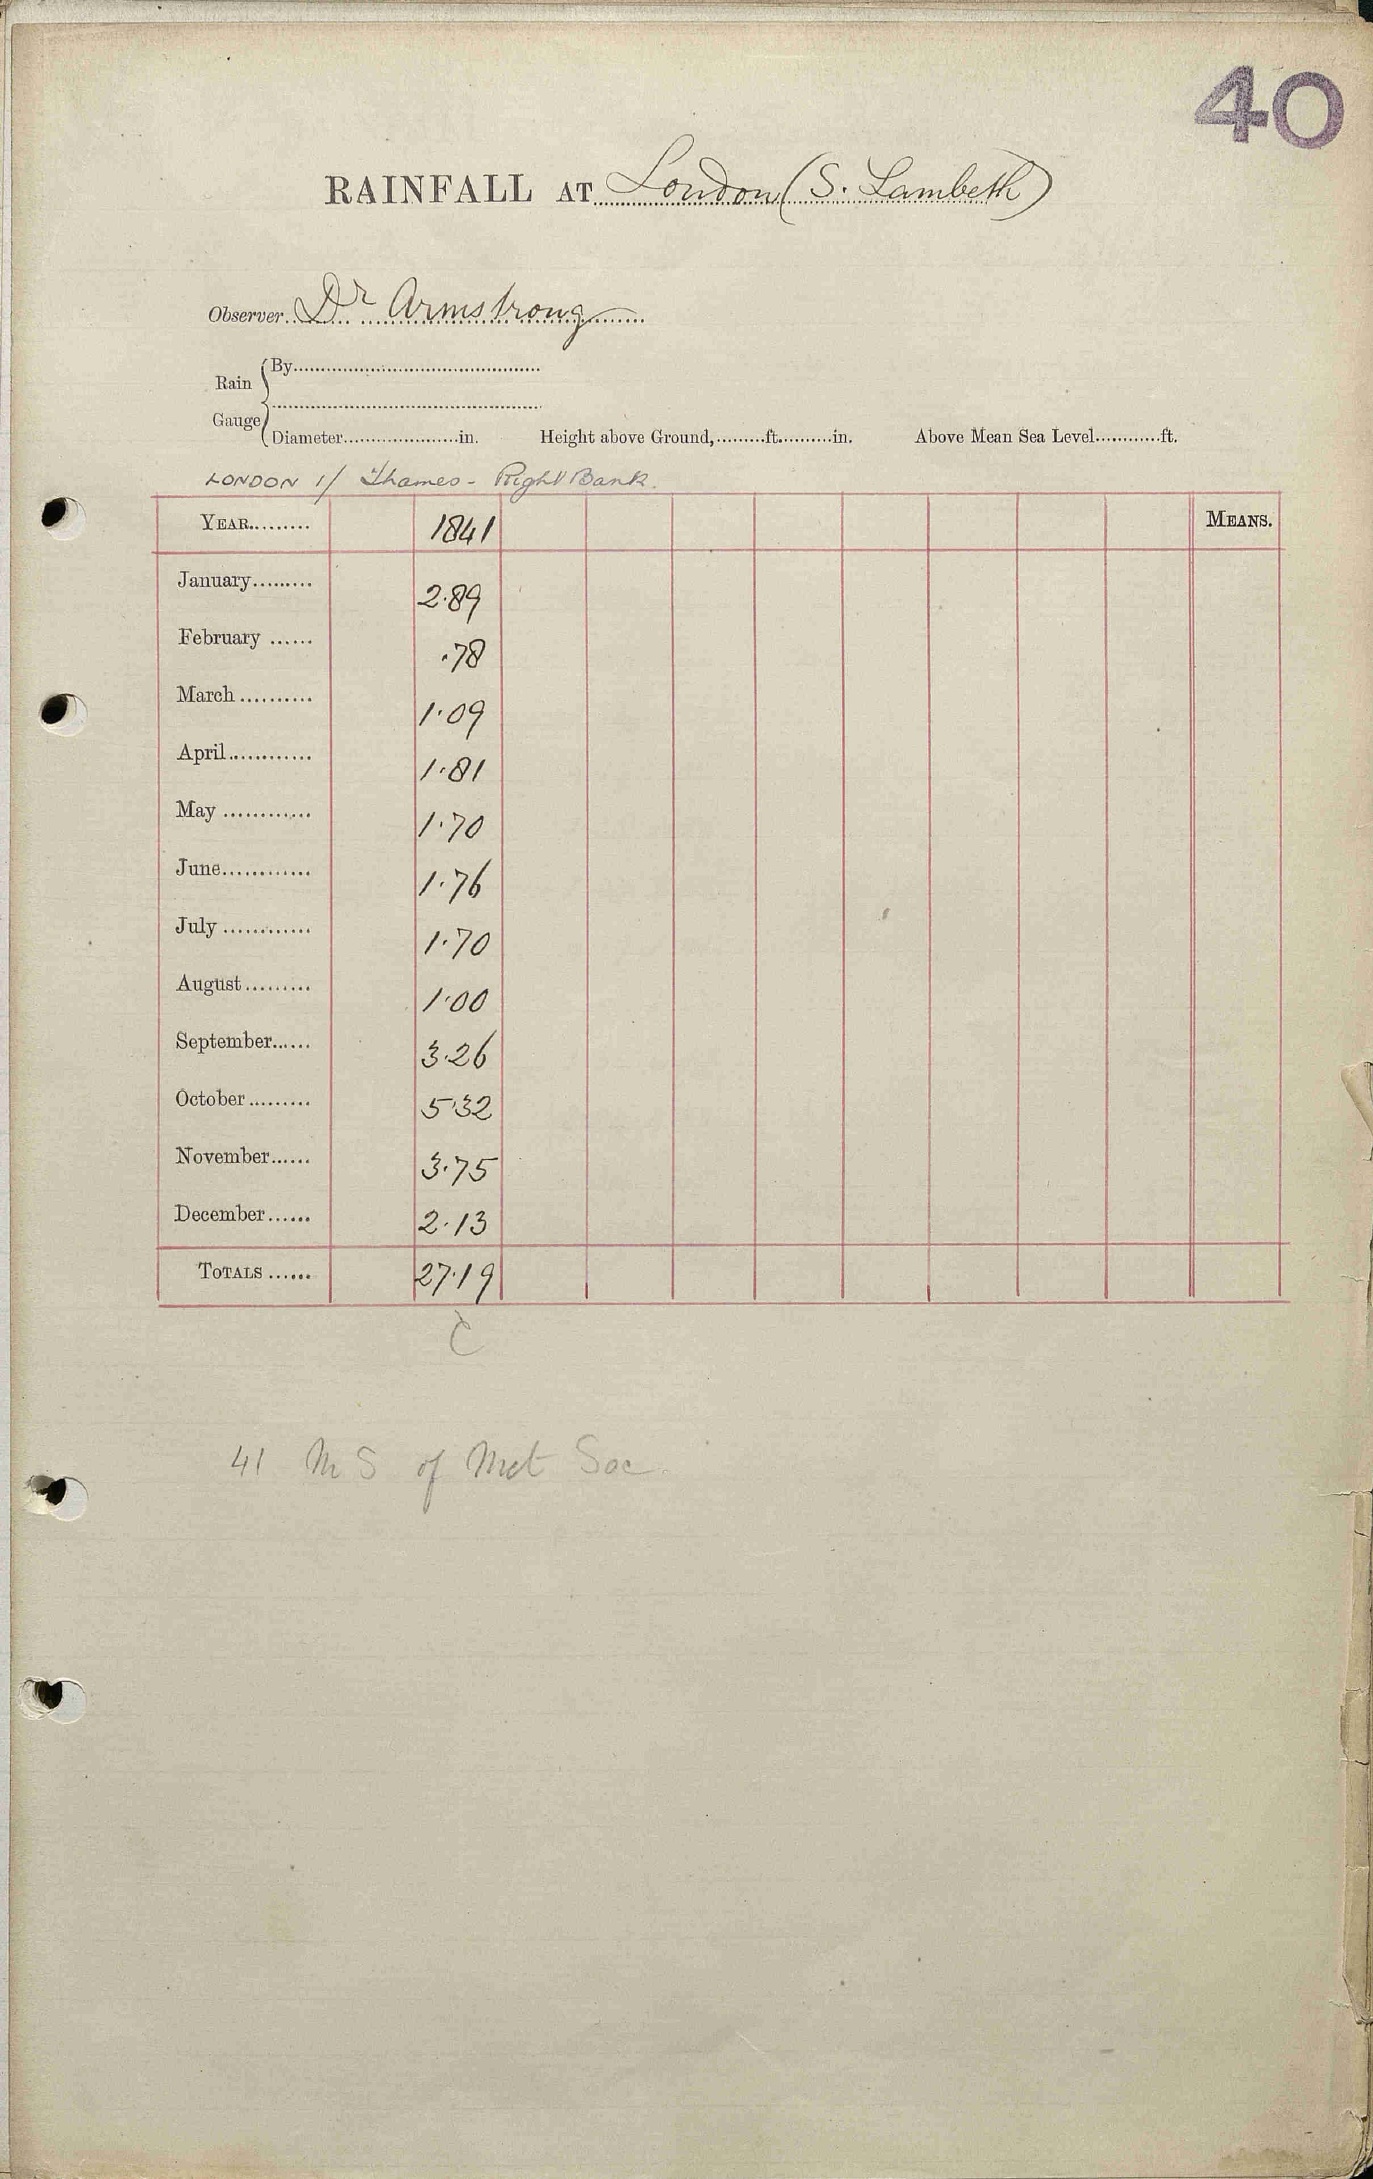 40
RAINFALL AT London (S. Lambeth)
Observer Dr Armstrong
Rain Gauge
By
Diameter in. Height above Ground, ft. in. Above Mean Sea Level ft.
LONDON 1/ Thames - Right Bank.
YEAR 1841 MEANS.
January 2.89
February .78
March 1.09
April 1.81
May 1.70
June 1.76
July 1.70
August 1.00
September 3.26
October 5.32
November 3.75
December 2.13
TOTALS 27.19
C
41 MS of Met Soc.